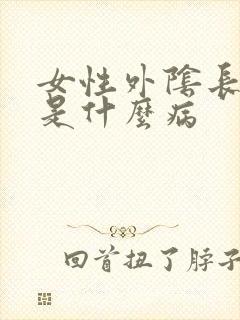 女性外陰長
是什麼病
回首扭了脖子